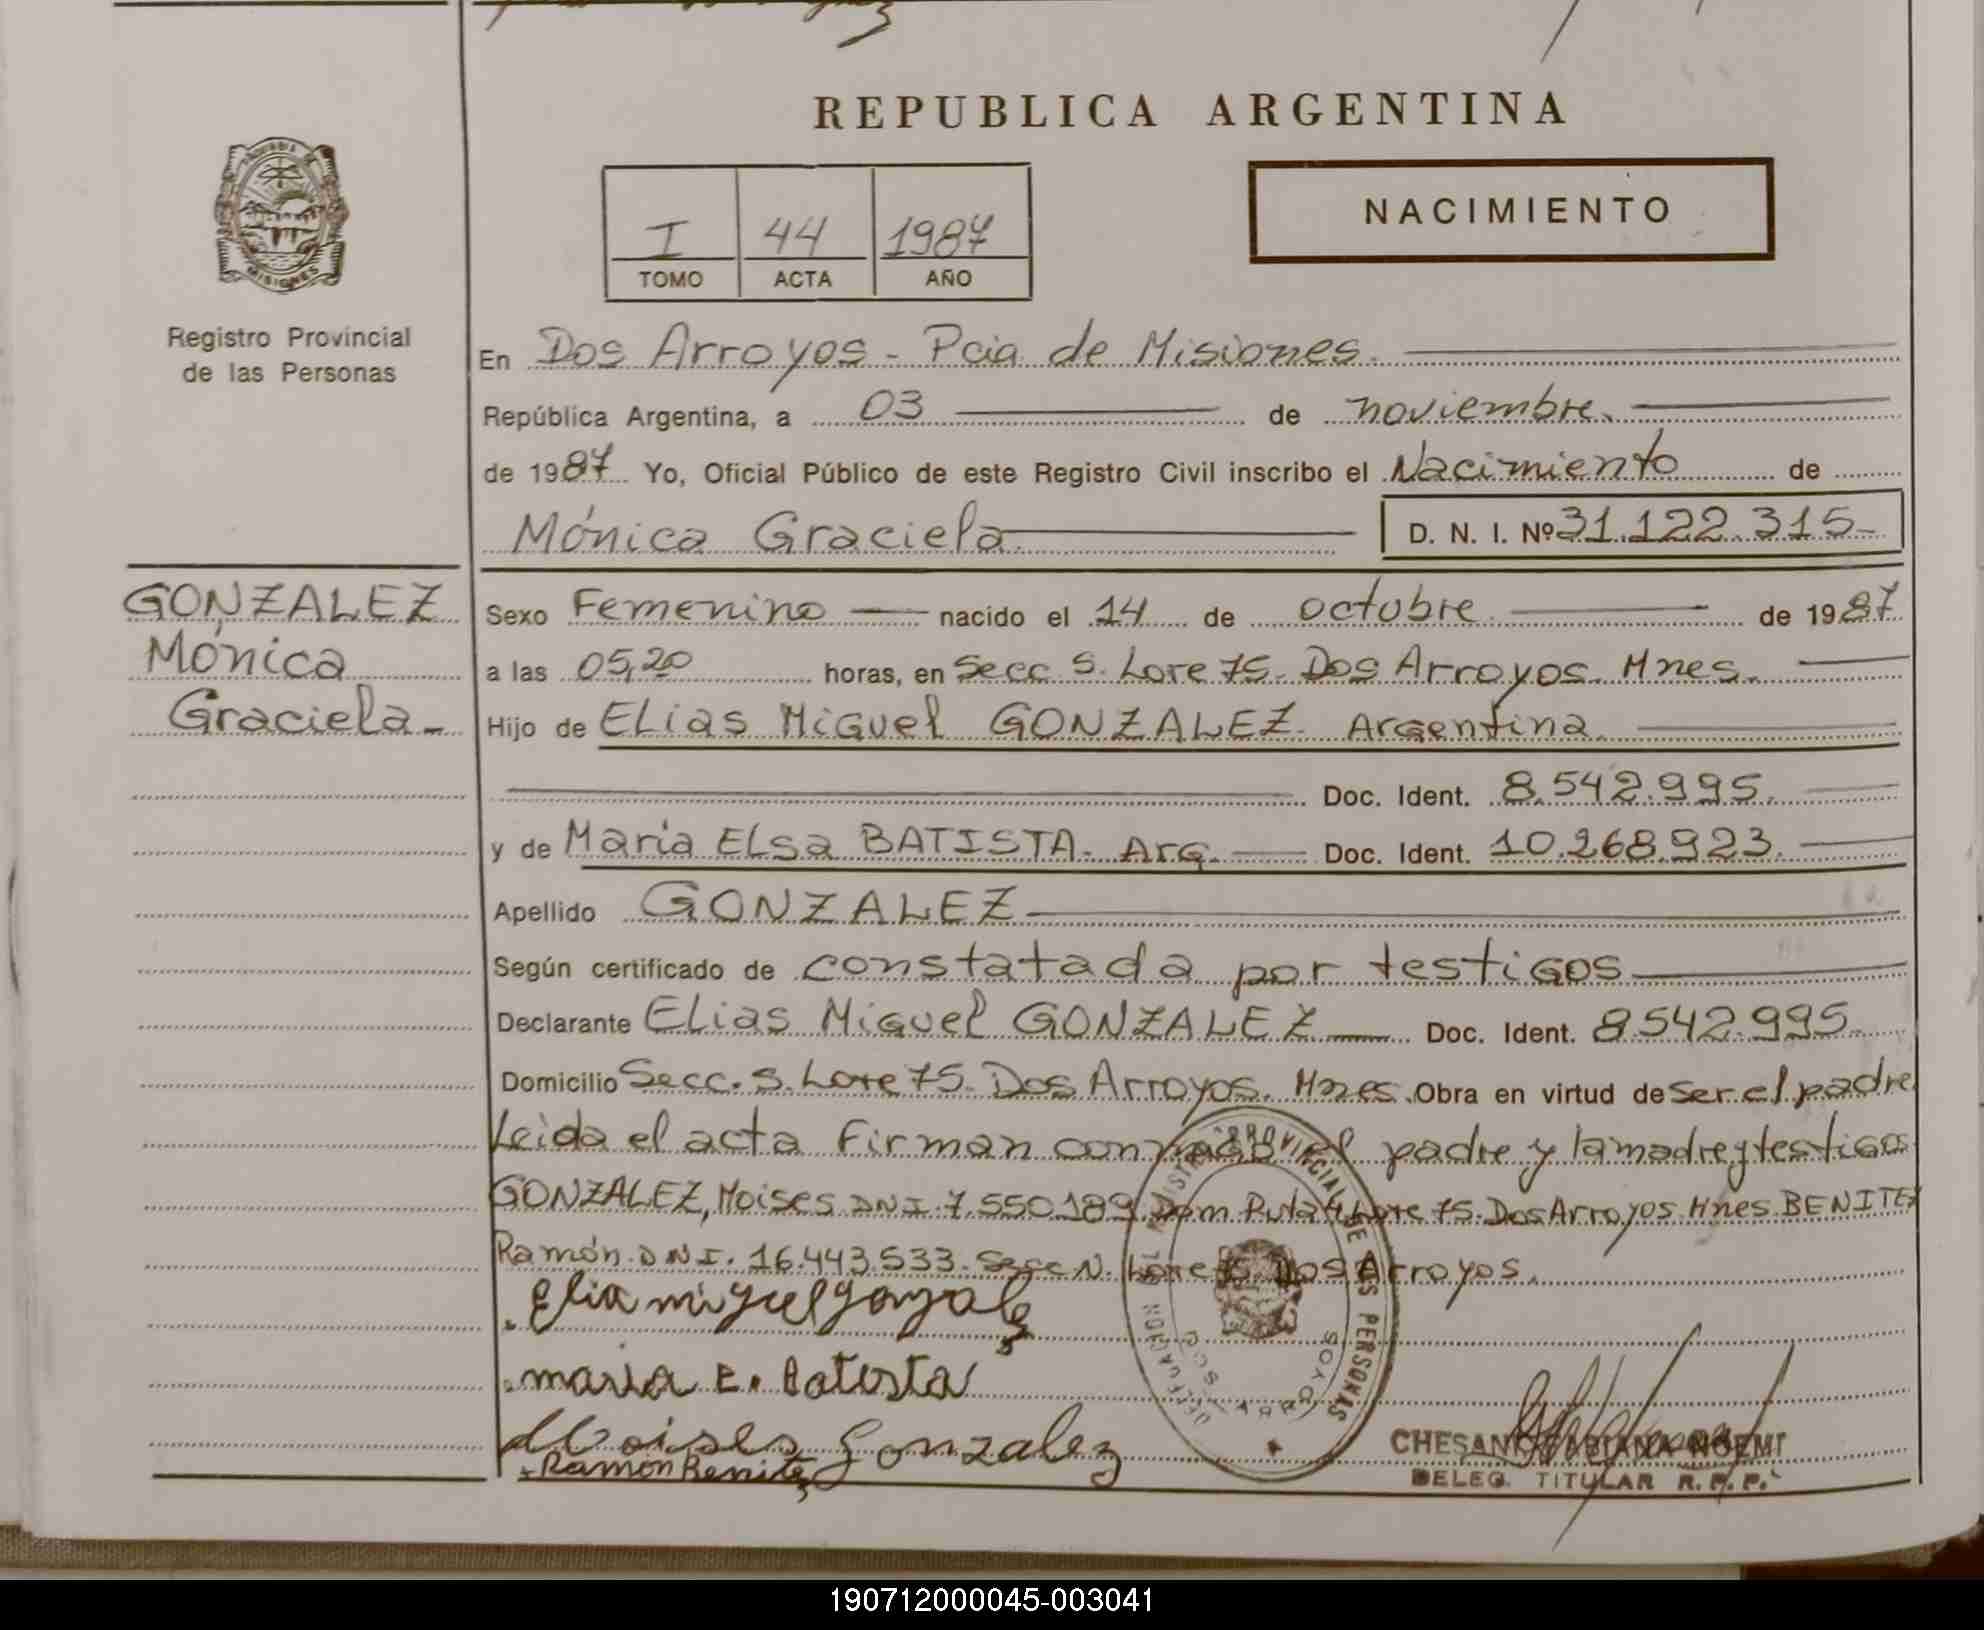 REPUBLICA ARGENTINA
NACIMIENTO
I 44 1987
TOMO ACTA AÑO
MISIONES
Registro Provincial
de las Personas
En Dos Arroyos - Pcia de Misiones.
República Argentina, a 03 de noviembre.
de 1987 Yo, Oficial Público de este Registro Civil inscribo el Nacimiento de
Mónica Graciela D. N. I. Nº 31.122.315-
GONZALEZ
Mónica
Graciela-
Sexo Femenino nacido el 14 de octubre de 1987
a las 05,20 horas, en Secc S. Lote 75. Dos Arroyos. Mnes.
Hijo de ELias MiGuel GONZALEZ. ArGentina.
Doc. Ident. 8.542.995.
y de Maria ELSa BATISTA. ArG. Doc. Ident. 10.268.923.
Apellido GONZALEZ
Según certificado de constatada por testiGos
Declarante ELias MiGuel GONZALEZ Doc. Ident. 8.542.995.
Domicilio Secc. S. Lote 75. Dos Arroyos. Mnes. Obra en virtud de ser el padre
Leida el acta Firman conmigo el padre y la madre y testiGos
GONZALEZ, Moises DNI 7.550.189 Dom Lote 75. Dos Arroyos Mnes. BENITEZ
Ramón. DNI. 16.443.533. Secc N. Lote Dos Arroyos.
Elia miguel gonzalez
maria E. Batista
Moises Gonzalez
Ramon Benitez
PROVINCIAL DE LAS PERSONAS
CHESANI FABIANA NOEMI
DELEG. TITULAR R.P.P.
190712000045-003041